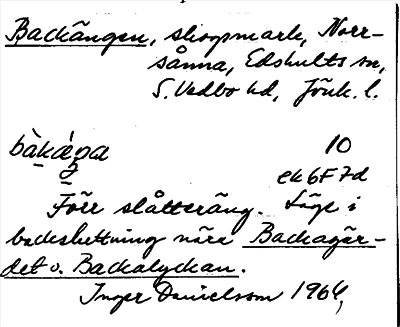 Backängen, skogsmark, Norr-
sånna, Edshults sn,
S. Vedbo hd, Jönk. l.
bàkæ̀ŋa 10
ek 6F 7d
Förr slåtteräng. Läge i
backsluttning nära Backagär-
det o. Backalyckan.
Inger Danielsson 1964,